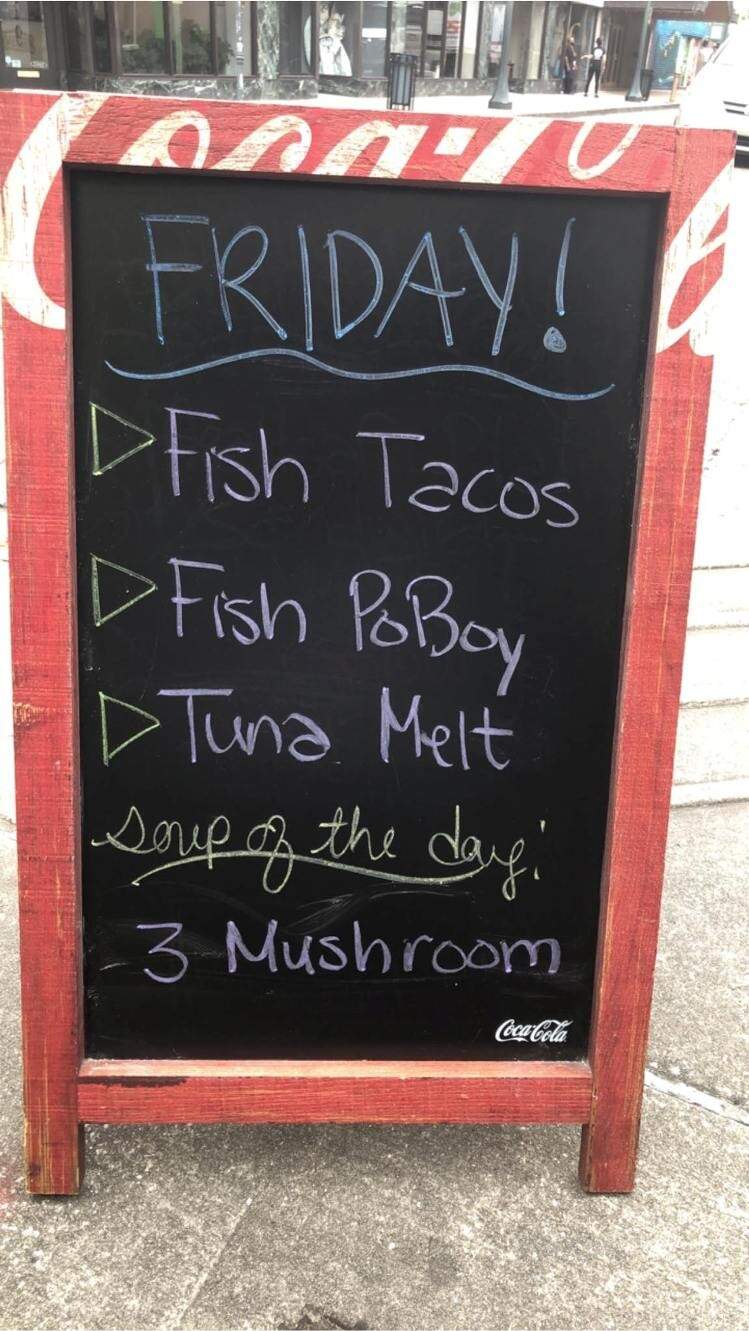 Coca-Cola
FRIDAY!
Fish Tacos
Fish PoBoy
Tuna Melt
Soup of the day:
3 Mushroom
Coca-Cola